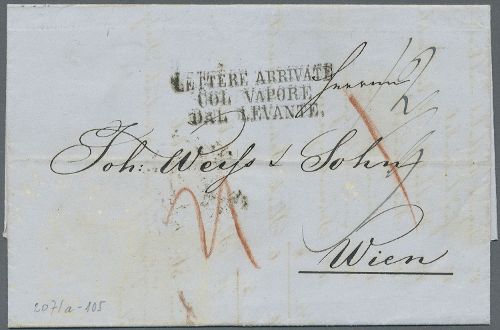 LETTERE ARRIVATE
COL VAPORE
DAL LEVANTE.
Herren
Joh: Weiss & Sohn
Wien
207/a-105